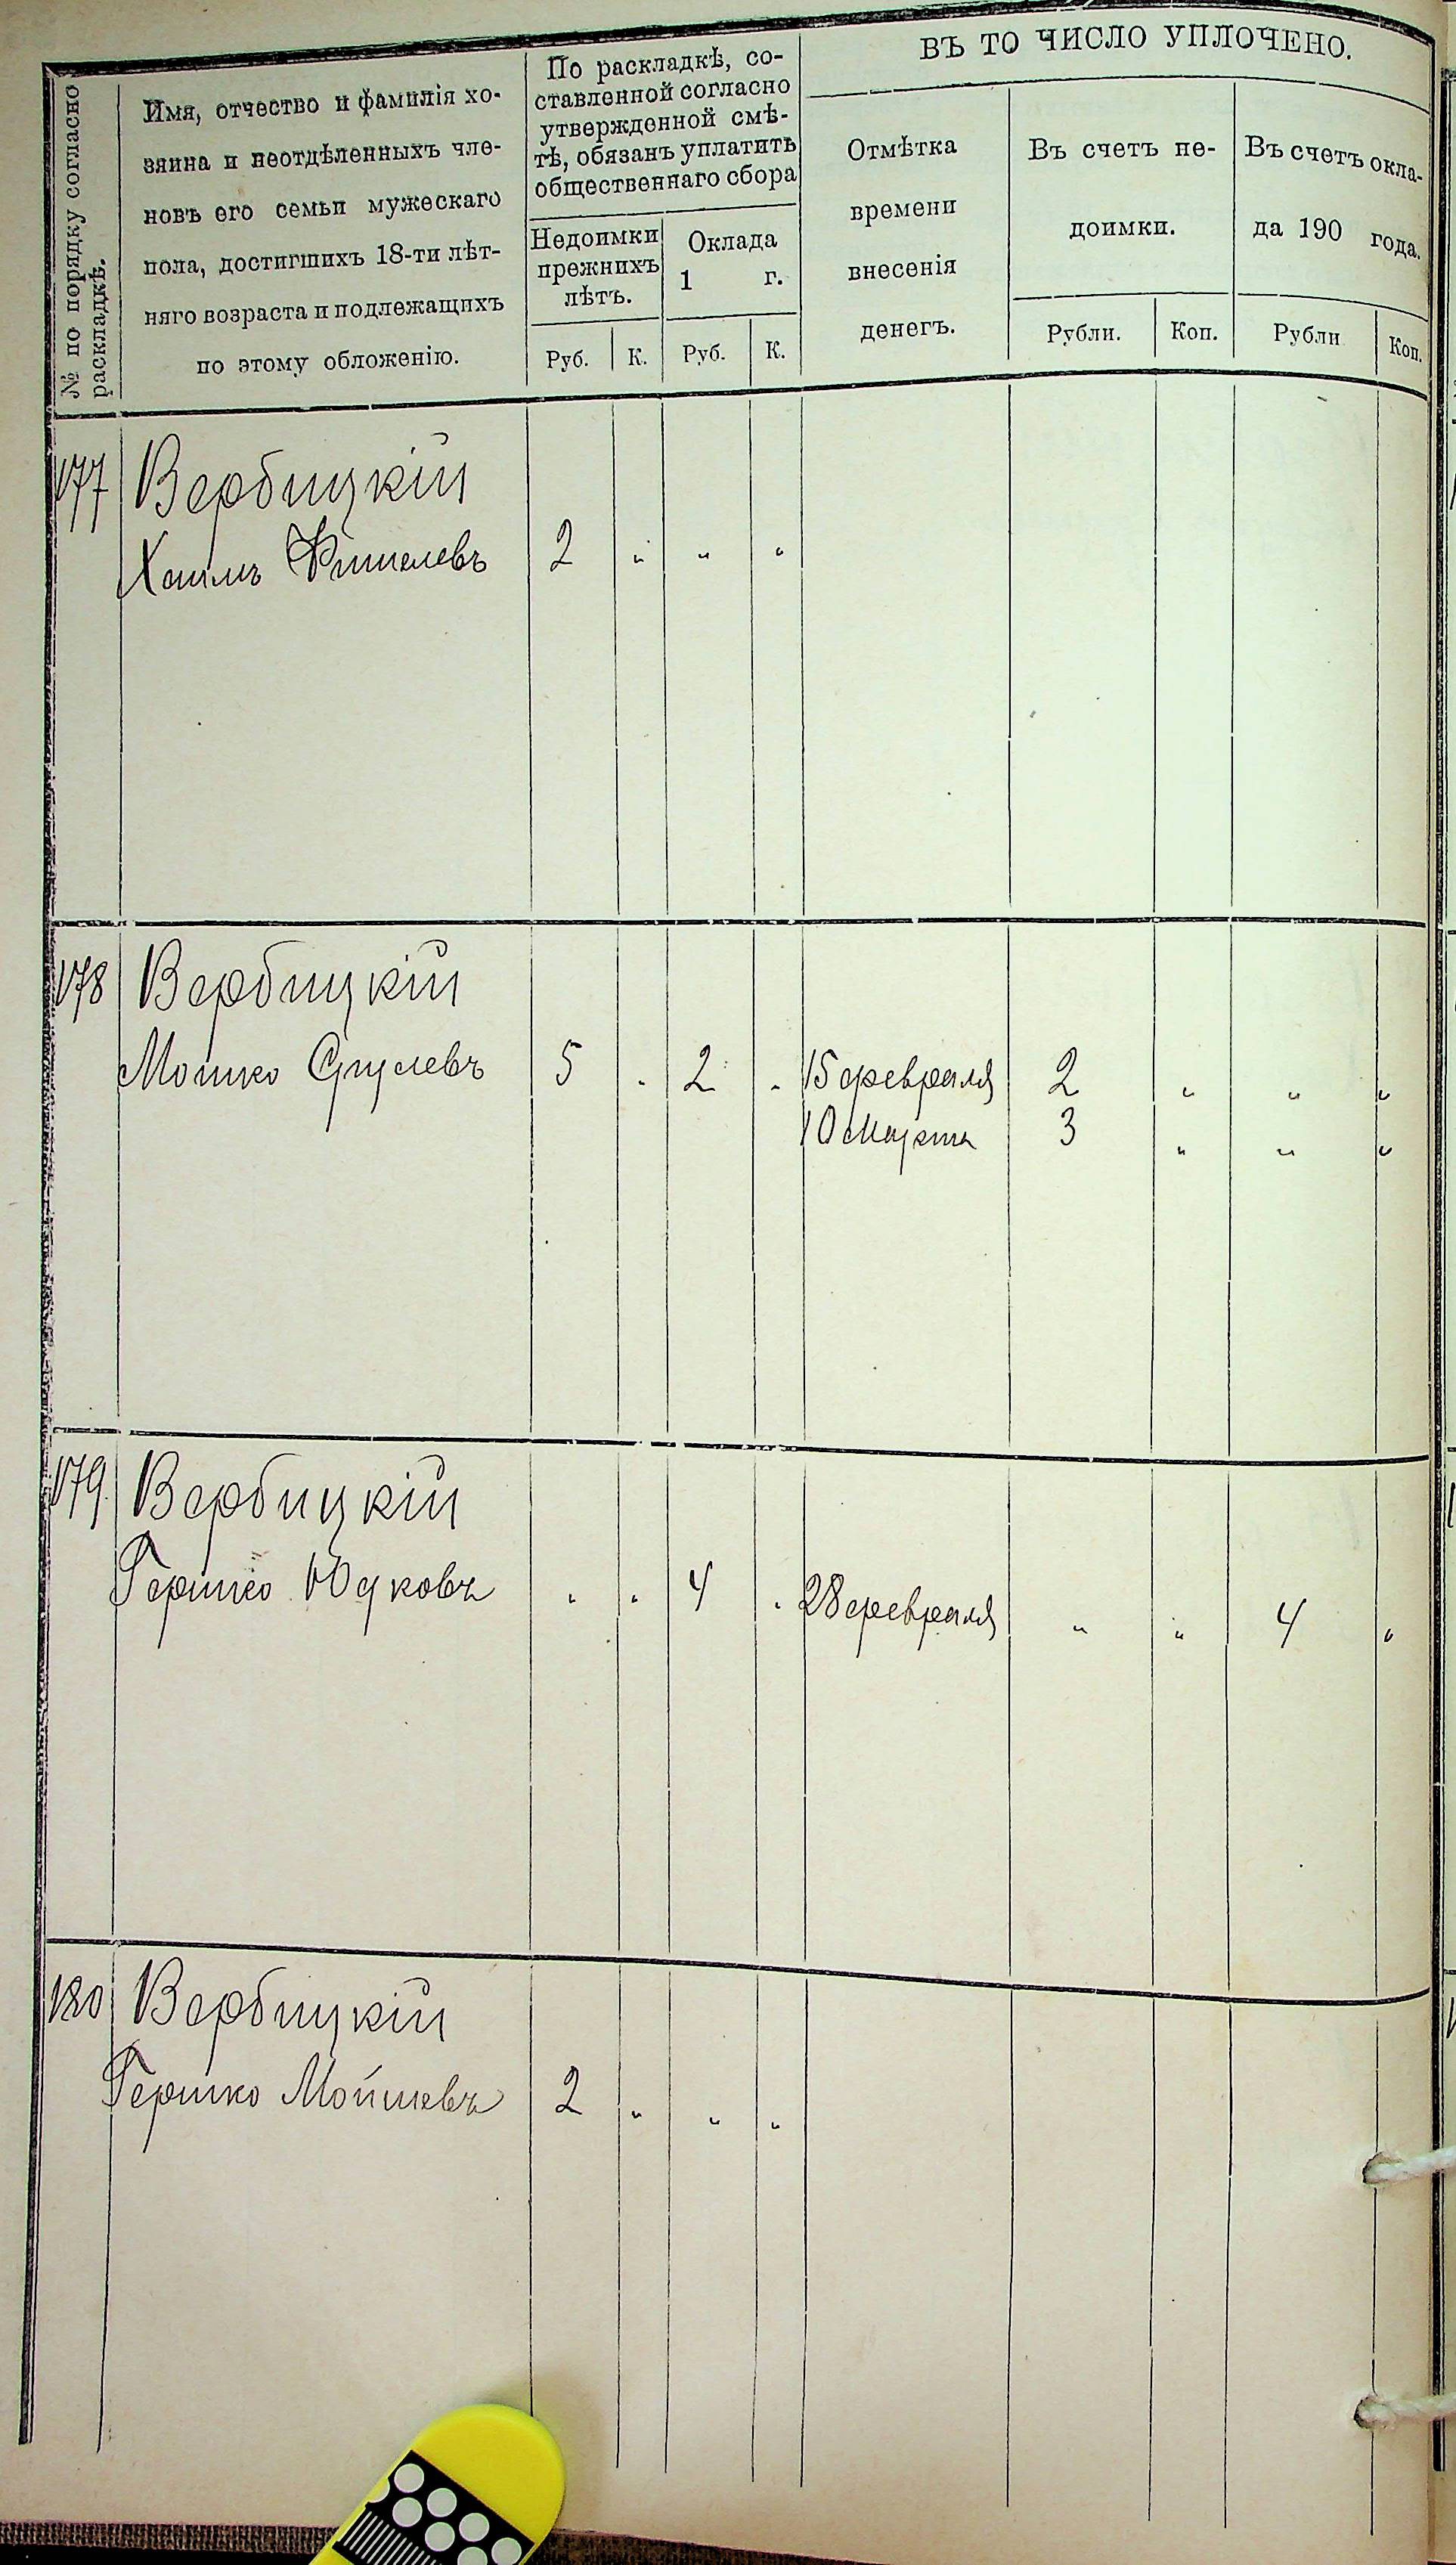 № по порядку согласно
раскладкѣ.
Имя, отчество и фамилія хо-
зяина и неотдѣленныхъ чле-
новъ его семьи мужескаго
пола, достигшихъ 18-ти лѣт-
няго возраста и подлежащихъ
по этому обложенію.
По раскладкѣ, со-
ставленной согласно
утвержденной смѣ-
тѣ, обязанъ уплатить
общественнаго сбора
Недоимки
прежнихъ
лѣтъ.
Оклада
1 г.
Руб. К. Руб. К.
ВЪ ТО ЧИСЛО УПЛОЧЕНО.
Отмѣтка
времени
внесенія
денегъ.
Въ счетъ не-
доимки.
Рубли. Коп.
Въ счетъ окла-
да 190 года.
Рубли Коп.
177 Вербицкій
Хаимъ Фишелевъ 2 „ „ „
178 Вербицкій
Мошко Срулевъ 5 . 2 . 15 февраля 2 „ „ „
10 Марта 3 „ „ „
179 Вербицкій
Гершко Юдковъ . . 4 . 28 февраля „ „ 4 „
180 Вербицкій
Гершко Мойшевъ 2 „ „ „